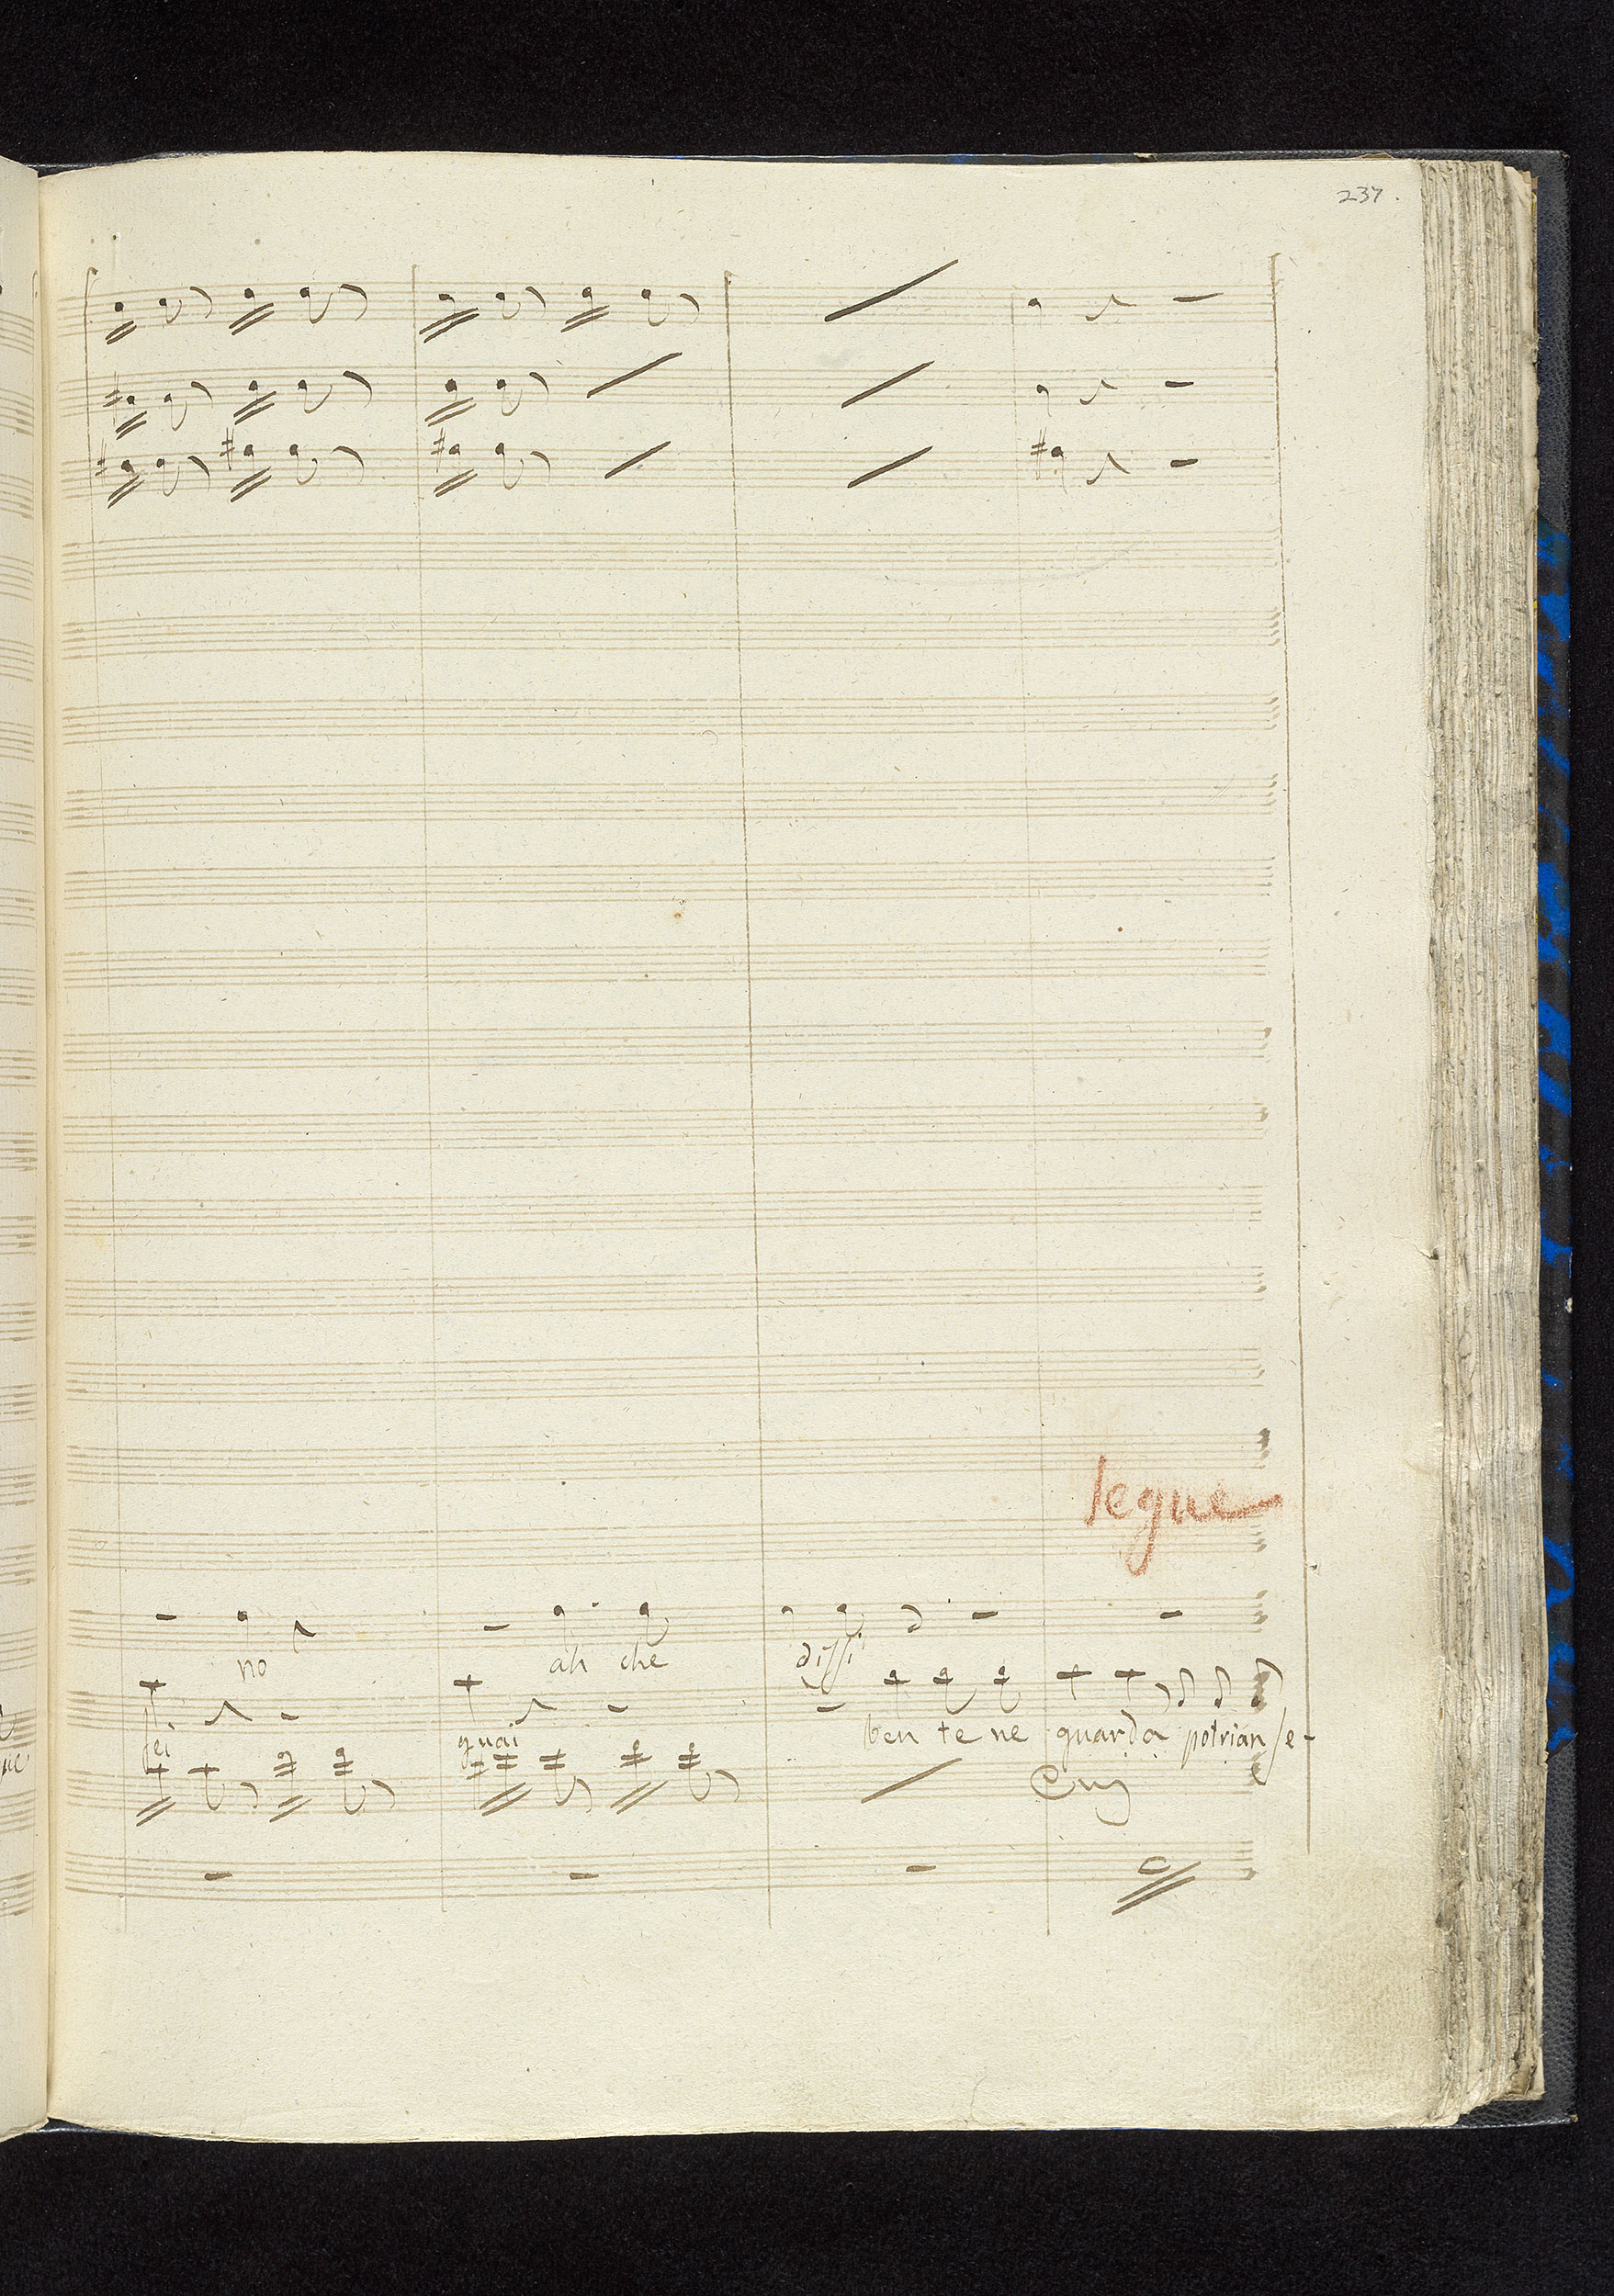 237.
segue
no ah che dissi
sei guai ben te ne guarda potrian se-